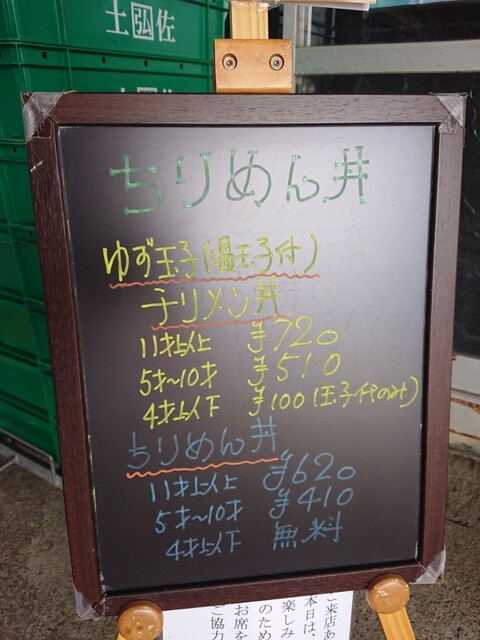 土佐弘
土佐弘
ちりめん丼
ゆず玉子(温玉子付)
チリメン丼
11才以上 ¥720
5才〜10才 ¥510
4才以下 ¥100(玉子代のみ)
ちりめん丼
11才以上 ¥620
5才〜10才 ¥410
4才以下 無料
ご来店あ
本日は
楽しみ
のため
お席を
ご協力